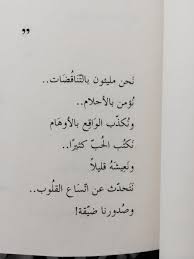 ”
نَحن مليئون بالتَّناقُضات..
نُؤمن بالأحلام..
ونُكذّب الوَاقِع بالأوهَام
نَكتُب الحُبّ كثيرًا..
ونَعِيشهُ قليلاً
نَتحدّث عن اتّساع القلُوب..
وصُدورنا ضيّقة!